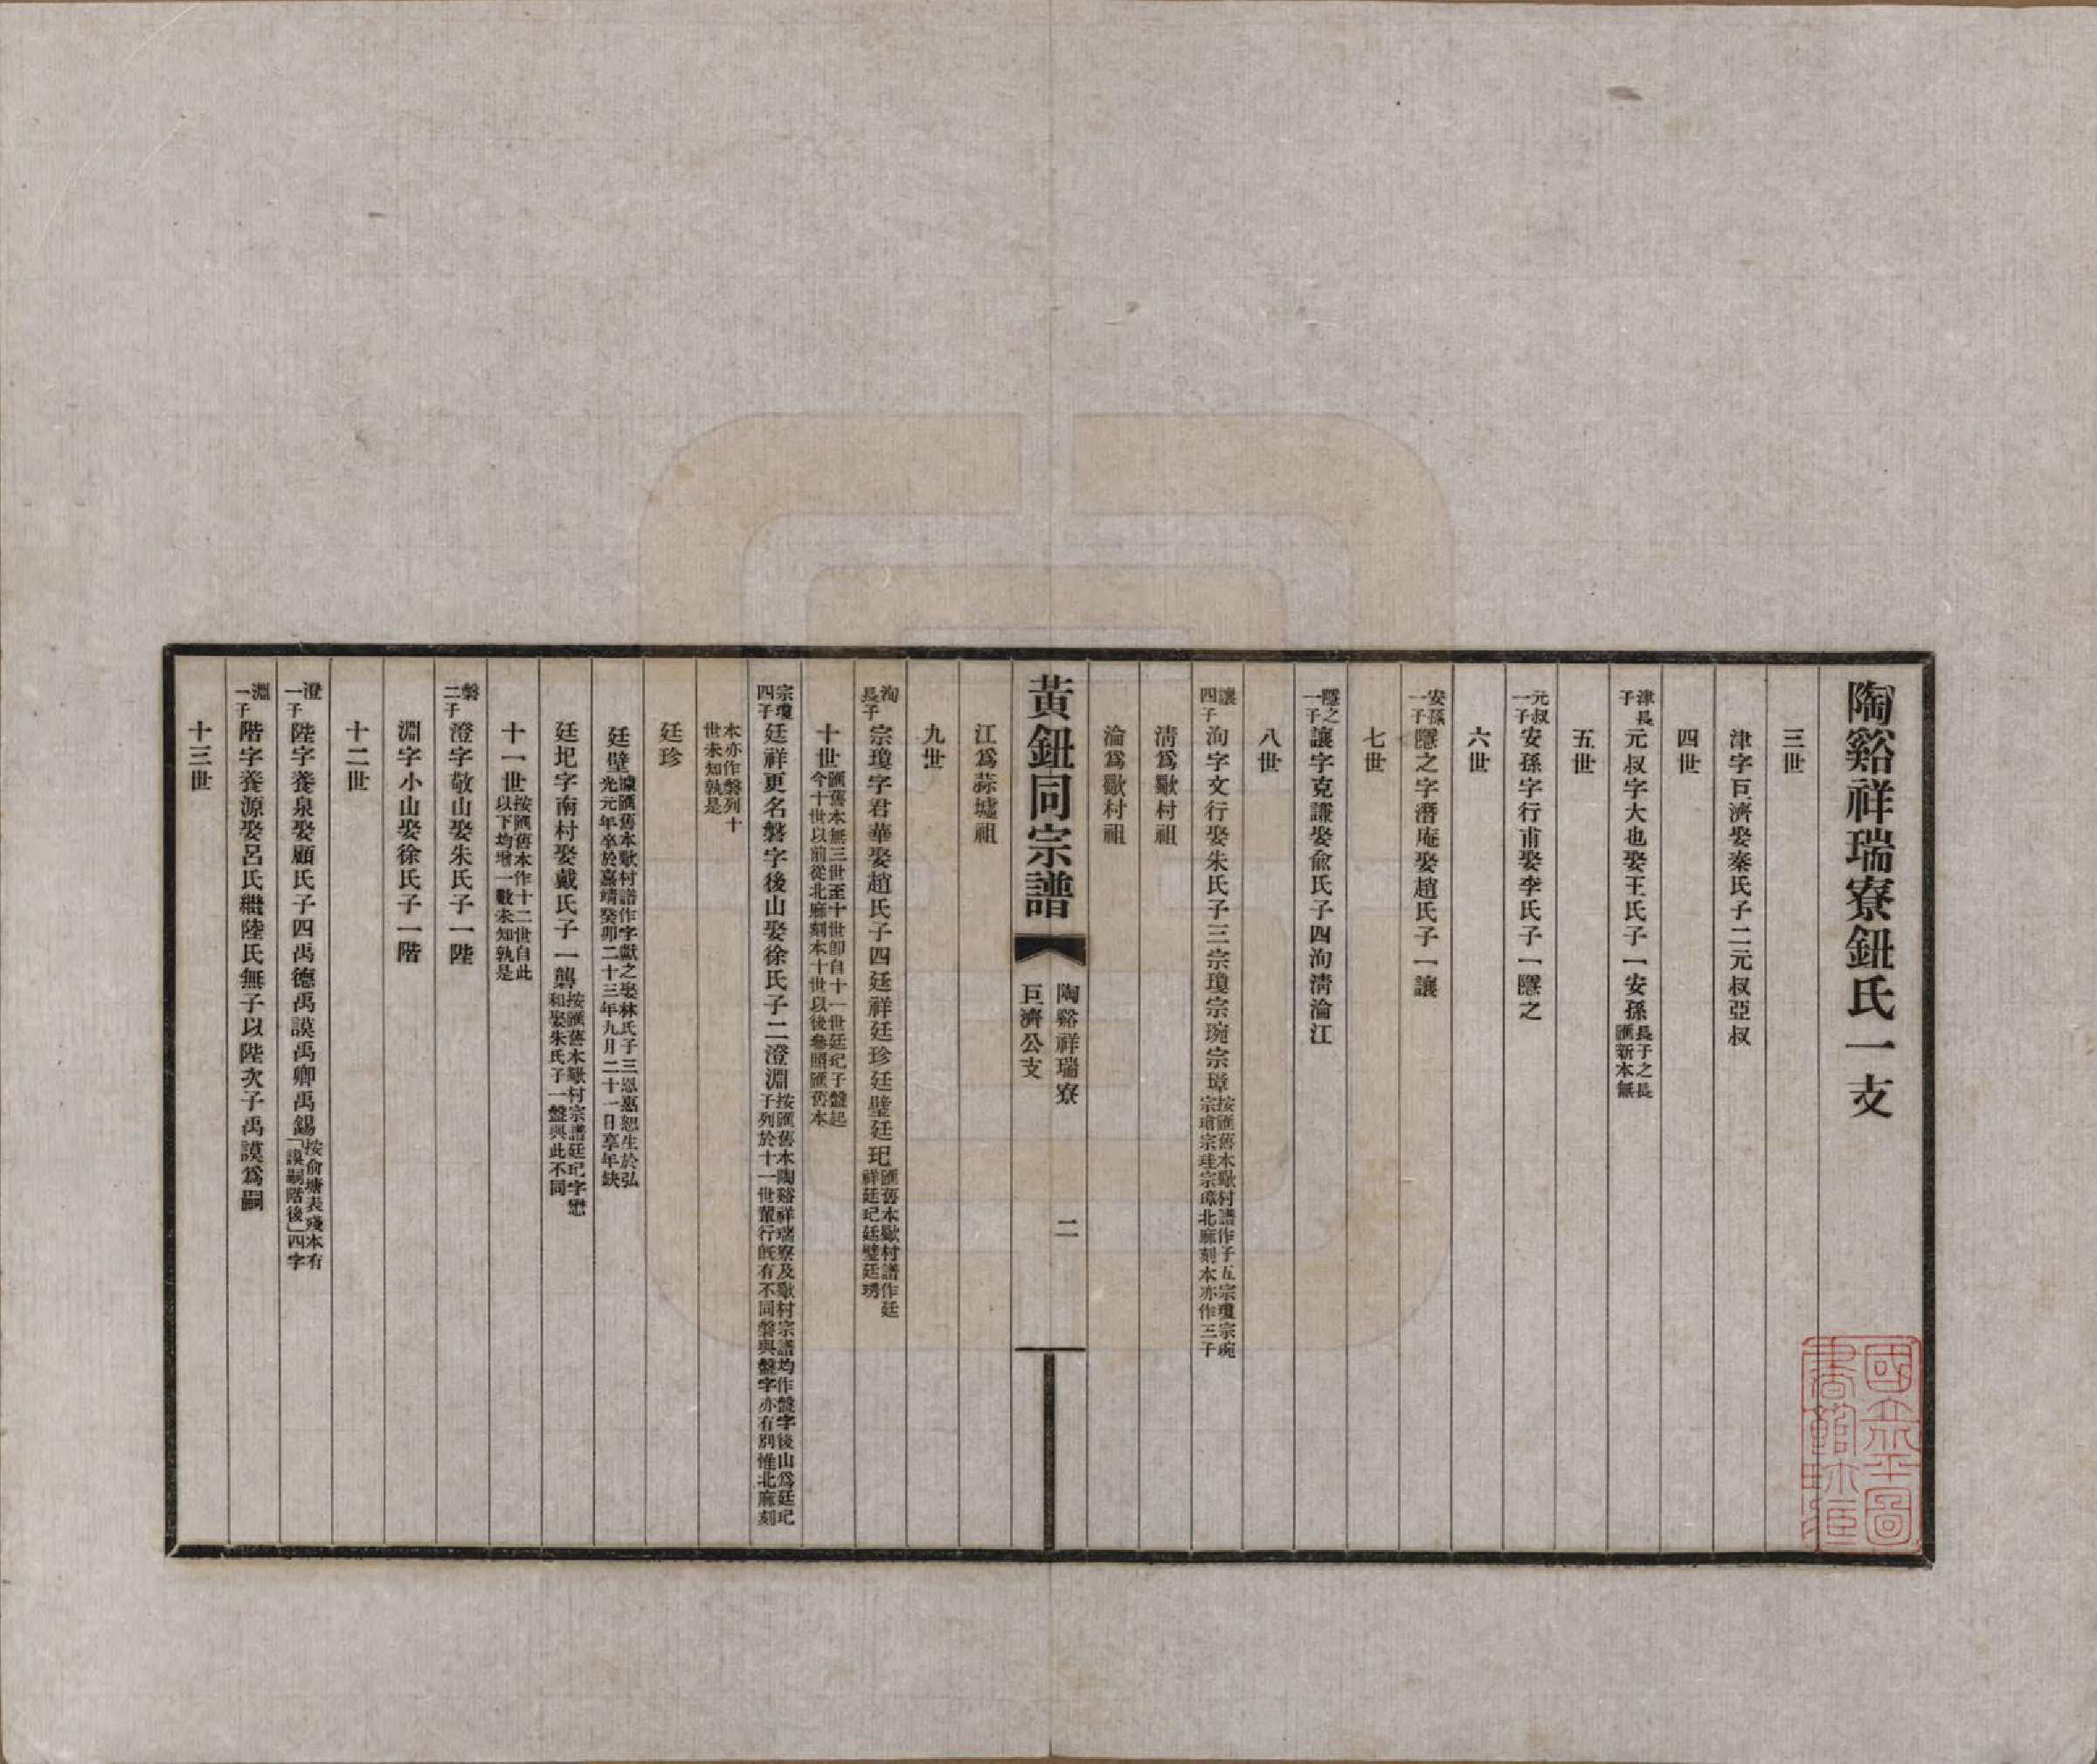 陶谿祥瑞寮鈕氏一支
三世
津字巨濟娶秦氏子二元叔亞叔
四世
津長子元叔字大也娶王氏子一安孫長子之長匯新本無
五世
元叔一子安孫字行甫娶李氏子一隱之
六世
安孫一子隱之字潛庵娶趙氏子一讓
七世
隱之一子讓字克謙娶俞氏子四洵淸淪江
八世
讓四子洵字文行娶朱氏子三宗瓊宗琬宗璋按匯舊本歐村譜作子五宗瓊宗琬宗瑲宗珪宗璋北麻刻本亦作三子
淸爲歐村祖
淪爲歐村祖
黃鈕同宗譜
陶谿祥瑞寮
巨濟公支
二
江爲蒜墟祖
九世
洵長子宗瓊字君華娶趙氏子四廷祥廷珍廷璧廷玘匯舊本歐村譜作廷祥廷玘廷璧廷琇
十世匯舊本無三世至十世卽自十一世廷玘子盤起今十世以前從北麻刻本十世以後參照匯舊本
宗瓊四子廷祥更名磐字後山娶徐氏子二澄淵按匯舊本陶谿祥瑞寮及歐村宗譜均作盤字後山爲廷玘子列於十一世輩行旣有不同磐與盤字亦有別惟北麻刻
本亦作磐列十世未知孰是
廷珍
廷璧據匯舊本歐村譜作字獻之娶林氏子三恩惠恕生於弘光元年卒於嘉靖癸卯二十三年九月二十一日享年缺
廷玘字南村娶戴氏子一龔按匯舊本歐村宗譜廷玘字懋和娶朱氏子一盤與此不同
十一世按匯舊本作十二世自此以下均增一數未知孰是
磐二子澄字敬山娶朱氏子一陞
淵字小山娶徐氏子一階
十二世
澄一子陞字養泉娶顧氏子四禹德禹謨禹卿禹錫按俞塘表殘本有「謨嗣階後」四字
淵一子階字養源娶呂氏繼陸氏無子以陞次子禹謨爲嗣
十三世
國立北平圖書館珍藏